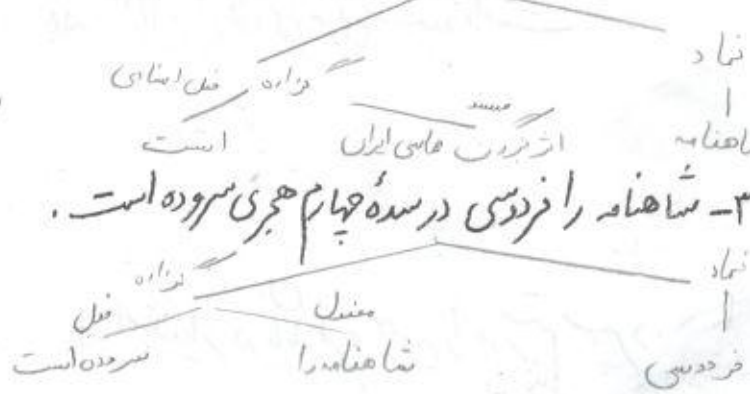 نهاد
گزاره فعل اسنادی
شاهنامه
مسند
از بزرگترین حماسه‌های ایران است
۳- شاهنامه را فردوسی در سدهٔ چهارم هجری سروده است.
نهاد
گزاره
مفعول فعل
فردوسی شاهنامه را سروده است